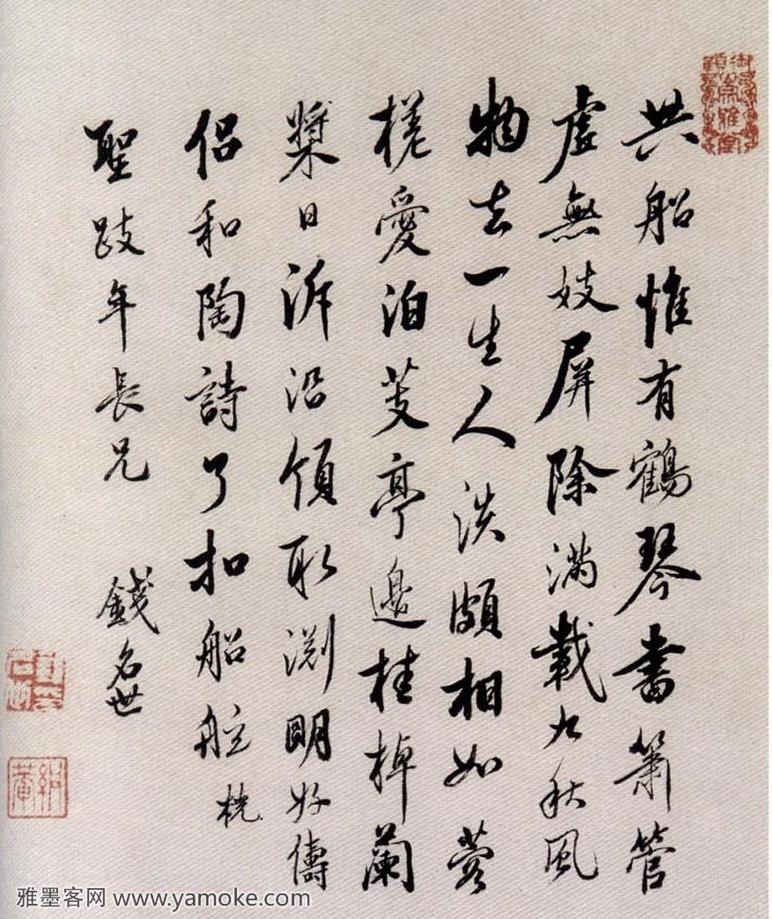 共船惟有鶴琴書簫管
虛無妓屏除滿載九秋風
物去一生人淡頗相如
槎愛泊芰亭邊桂棹蘭
槳日泝沿領取渕明好儔
侶和陶詩了扣船舷
聖跂年長兄 錢名世
雅墨客网 www.yamoke.com